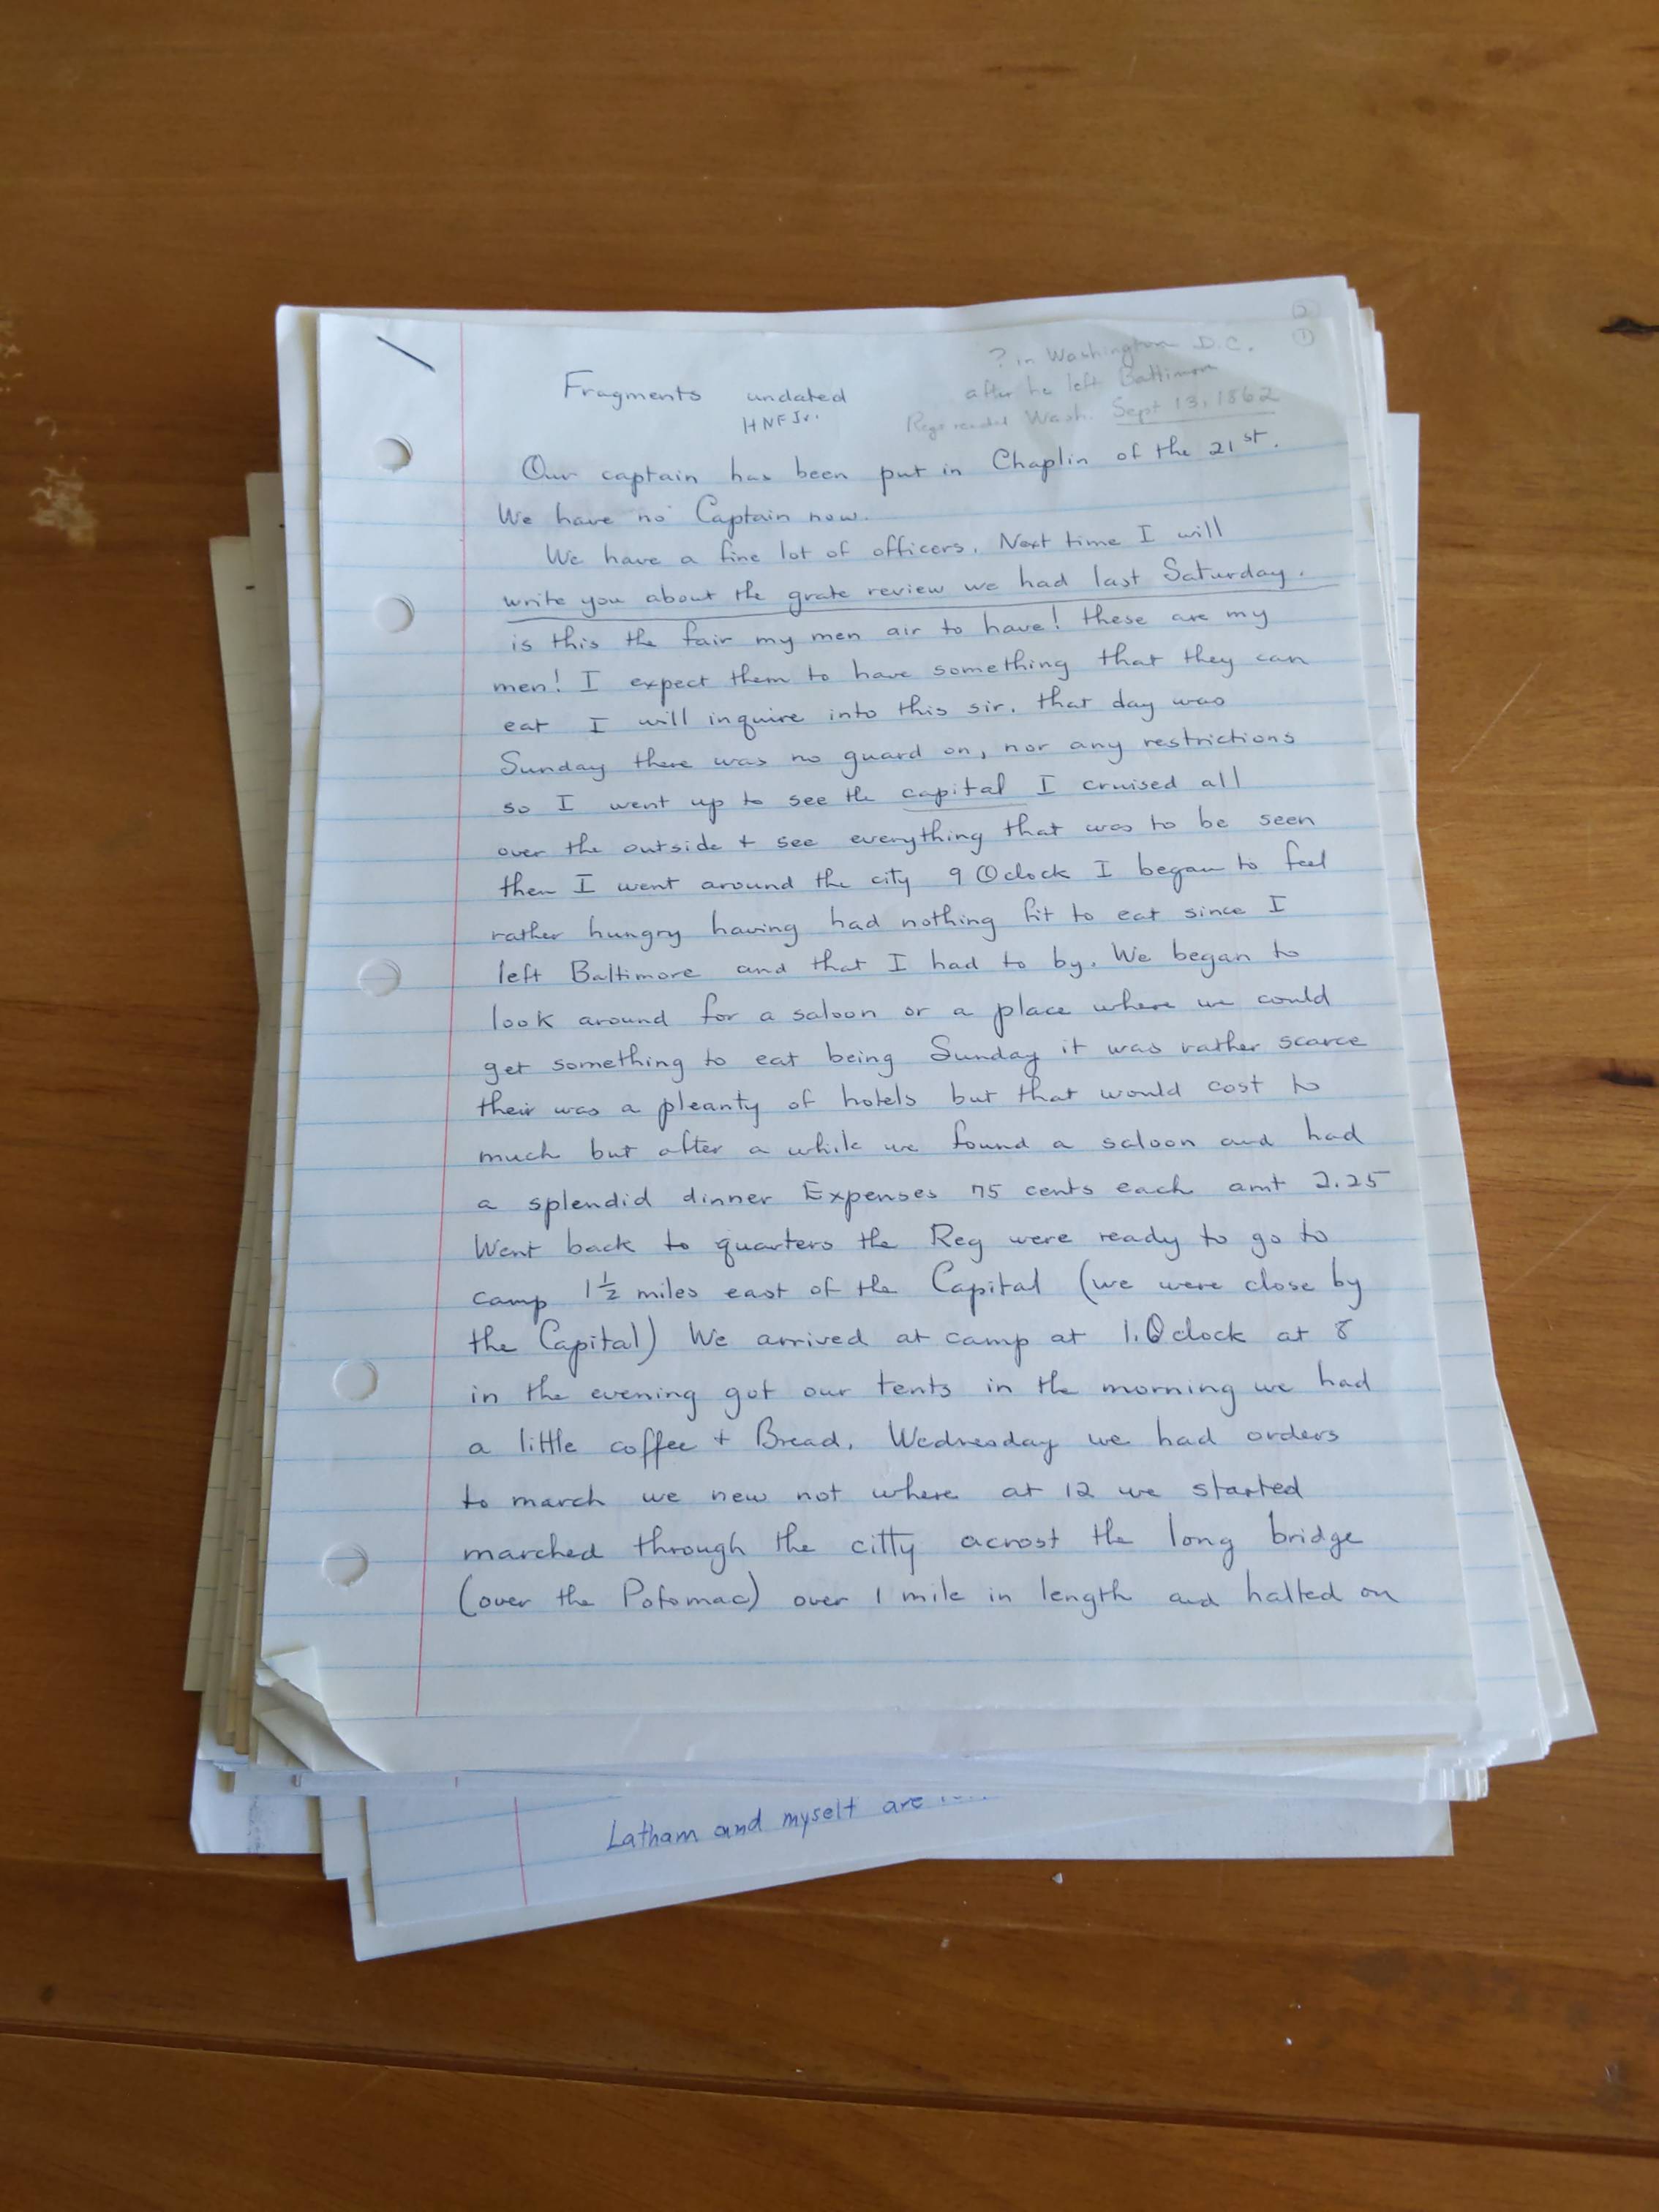 ②
①
? in Washington D.C.
after he left Baltimore
Fragments undated
HNF Jr.
Wash. Sept 13, 1862
Our captain has been put in Chaplin of the 21st.
We have no Captain now.
We have a fine lot of officers. Next time I will
write you about the grate review we had last Saturday.
is this the fair my men air to have! these are my
men! I expect them to have something that they can
eat I will inquire into this sir. that day was
Sunday there was no guard on, nor any restrictions
so I went up to see the capital I cruised all
over the outside + see everything that was to be seen
then I went around the city 9 Oclock I began to feel
rather hungry having had nothing fit to eat since I
left Baltimore and that I had to by. We began to
look around for a saloon or a place where we could
get something to eat being Sunday it was rather scarce
their was a pleanty of hotels but that would cost to
much but after a while we found a saloon and had
a splendid dinner Expenses 75 cents each amt 2.25
Went back to quarters the Reg were ready to go to
camp 1½ miles east of the Capital (we were close by
the Capital) We arrived at camp at 1.Oclock at 8
in the evening got our tents in the morning we had
a little coffee + Bread. Wednesday we had orders
to march we new not where at 12 we started
marched through the citty acrost the long bridge
(over the Potomac) over 1 mile in length and halted on
Latham and myself are